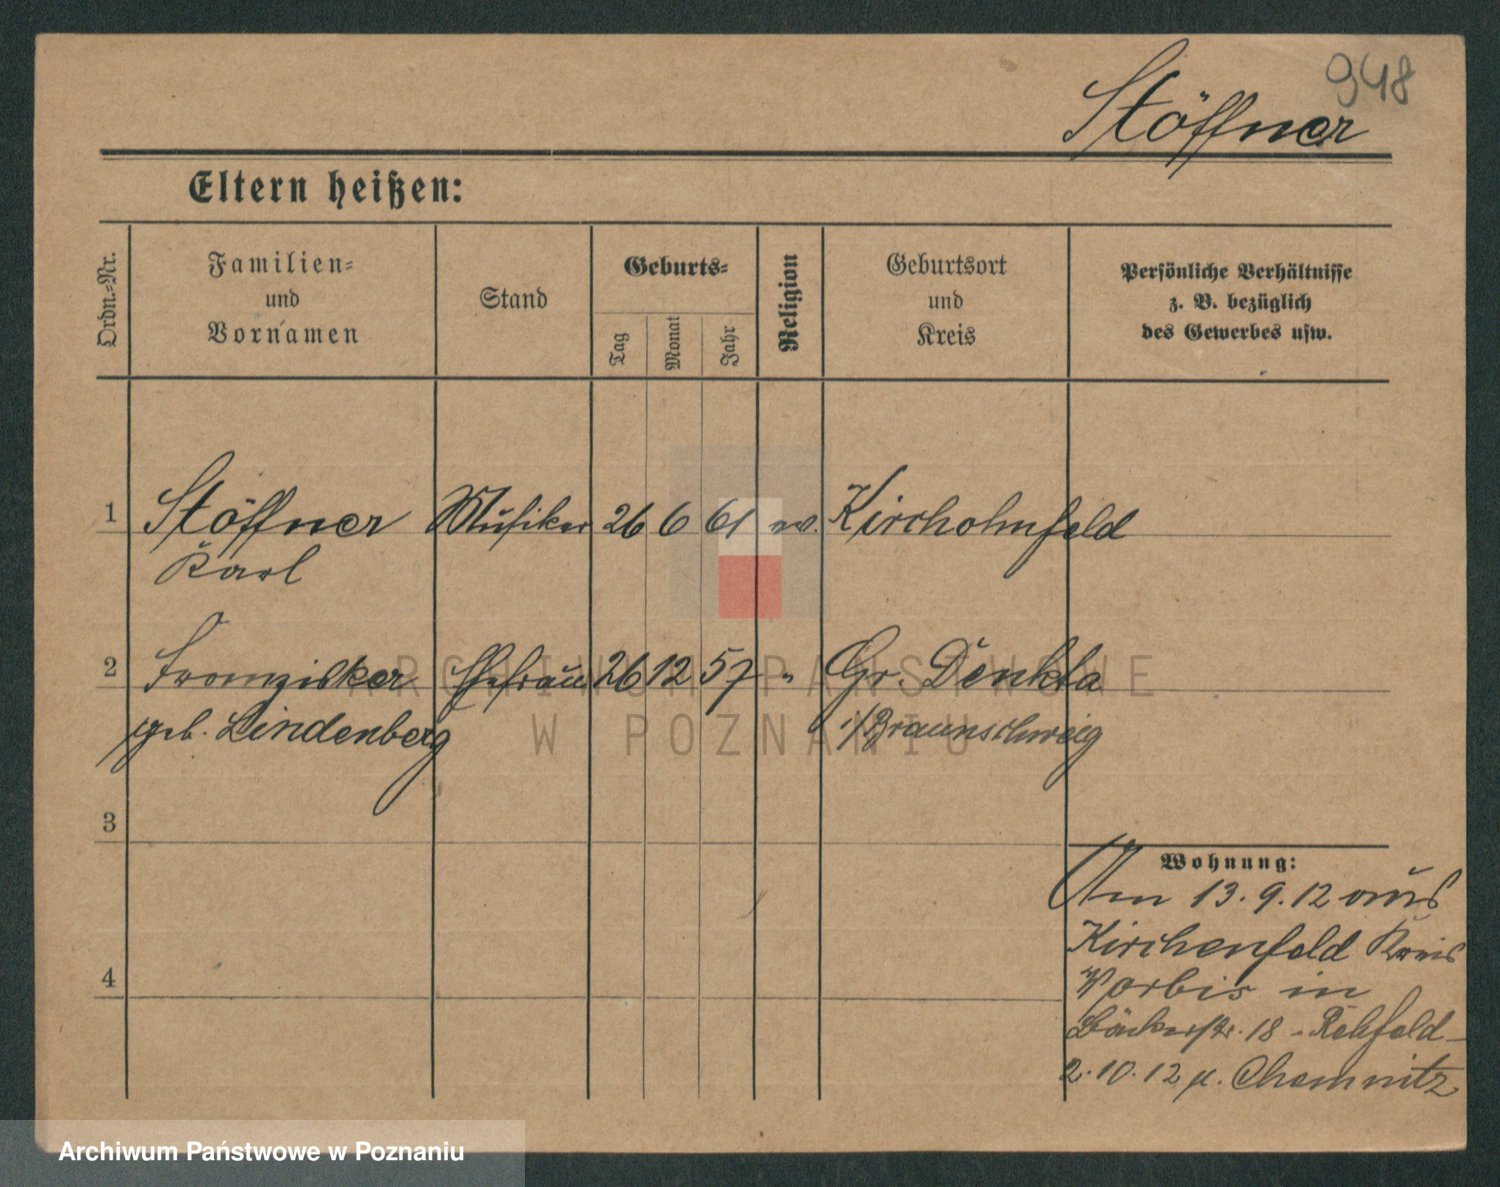 948
Stöffner
Eltern heißen:
Ordn.-Nr.
Familien-
und
Vornamen
Stand
Geburts-
Tag
Monat
Jahr
Religion
Geburtsort
und
Kreis
Persönliche Verhältnisse
z. B. bezüglich
des Gewerbes usw.
1 Stöffner Musiker 26 6 61 ev. Kirchohmfeld
Karl
2 Franzisker Ehefrau 26 12 57 " Gr. Denkta
geb. Lindenberg i/Braunschweig
3
4
Wohnung:
Am 13.9.12 aus
Kirchenfeld Kreis
Worbis in
Bäckerstr. 18 - Rehfeld -
2.10.12 n. Chemnitz
ARCHIWUM PAŃSTWOWE
W POZNANIU
Archiwum Państwowe w Poznaniu